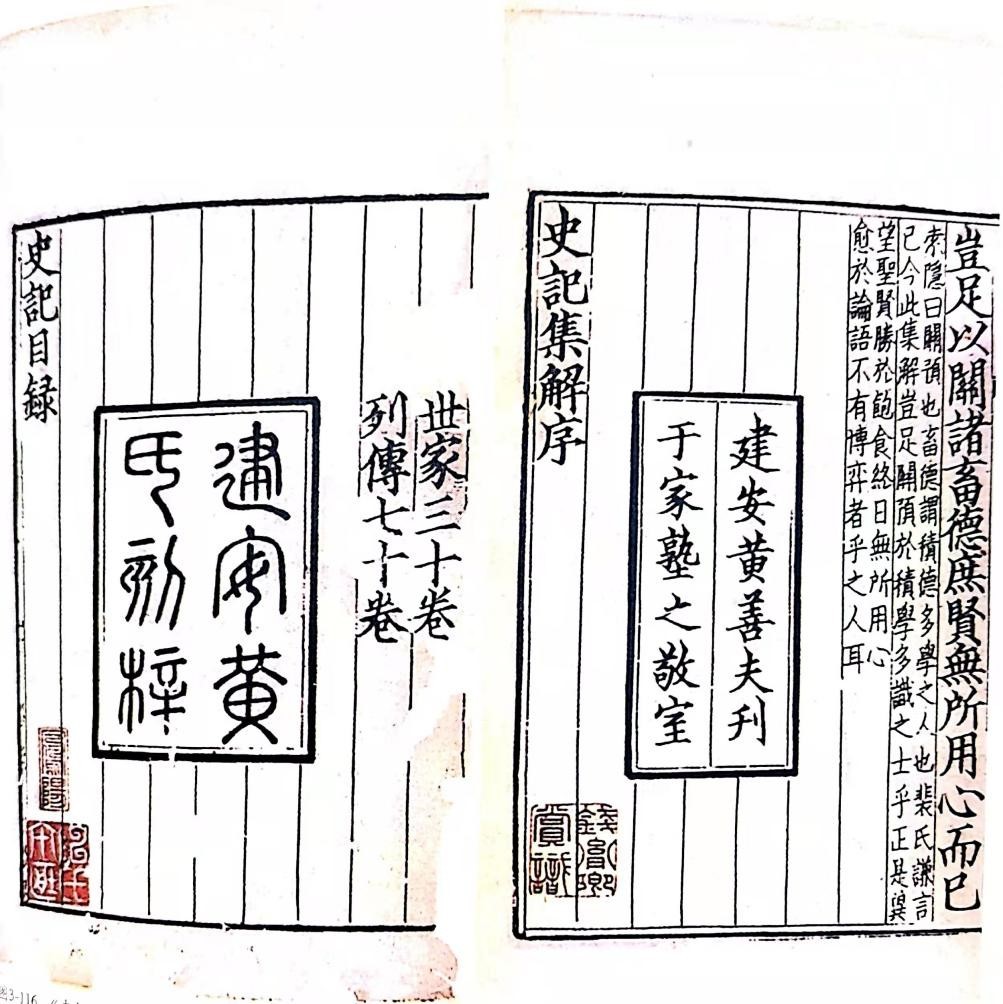 豈足以關諸畜德庶賢無所用心而已
索隱曰關預也畜德謂積德多學之人也裴氏謙言
已今此集解豈足關預於積學多識之士乎正是冀
望聖賢勝於飽食終日無所用心
愈於論語不有博弈者乎之人耳
建安黄善夫刊
于家塾之敬室
史記集解序
賞識
世家三十卷
列傳七十卷
建安黄
氏刻梓
史記目録
图3-116